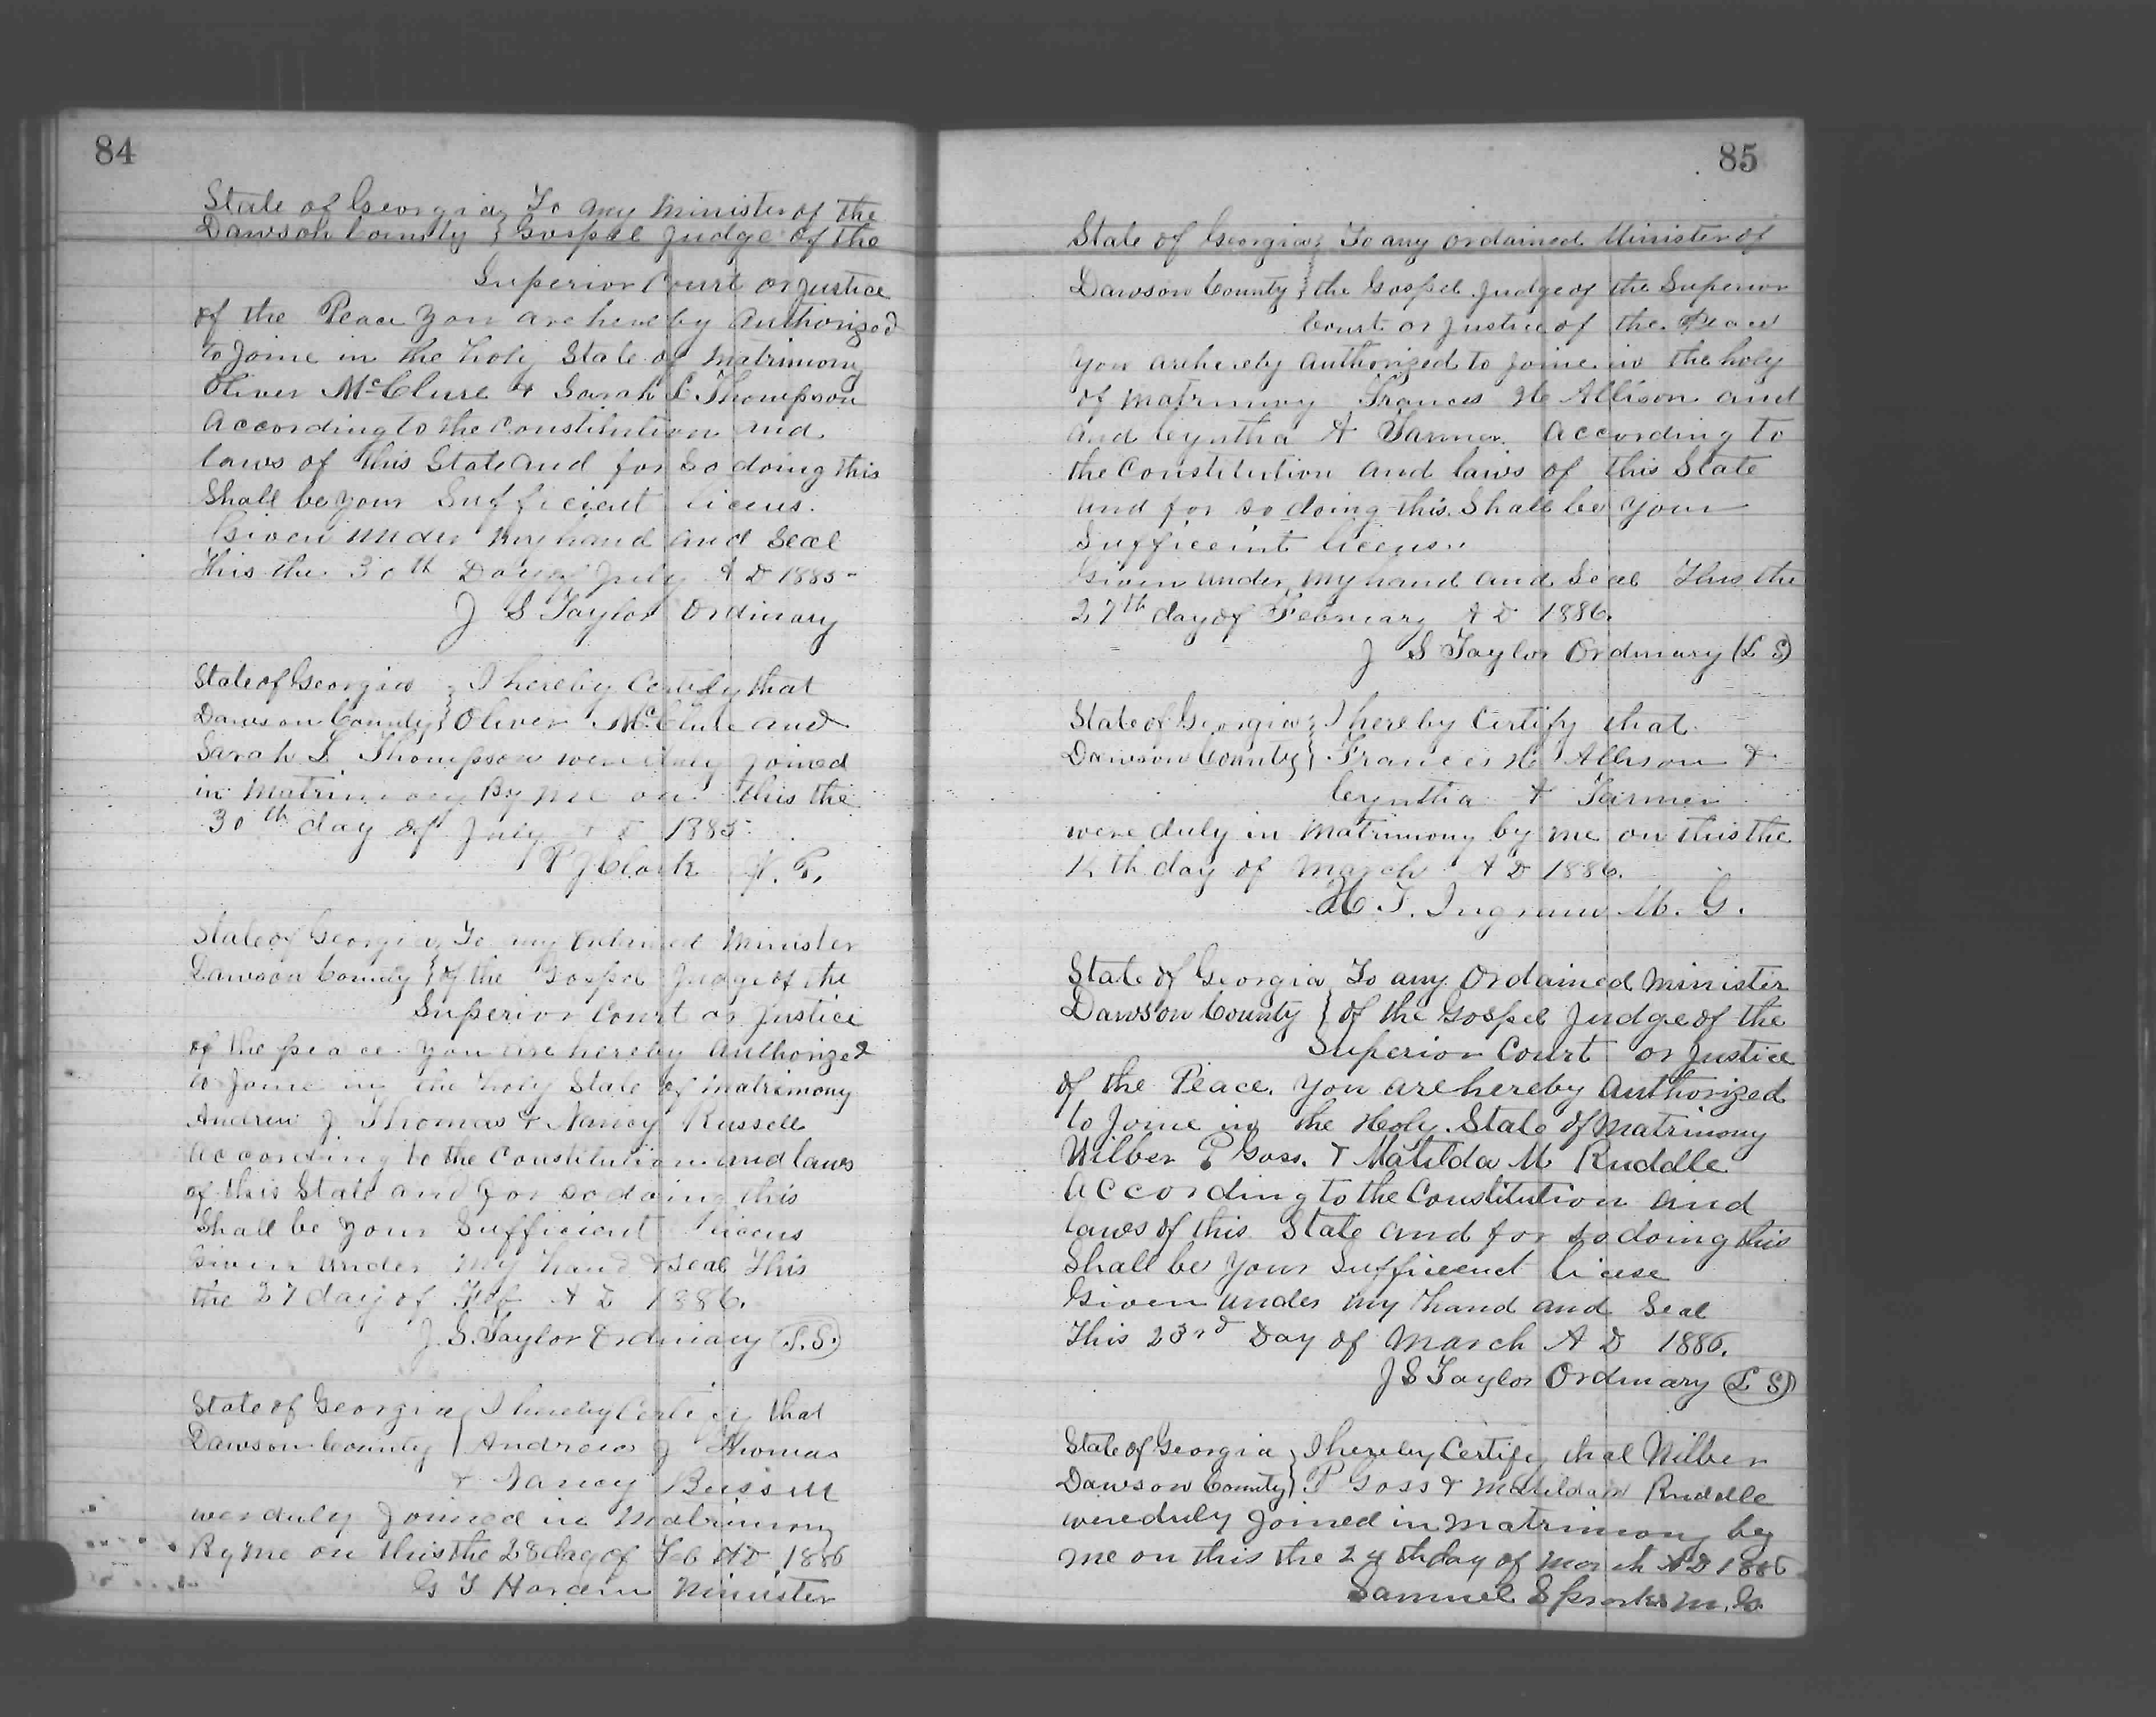 84
State of Georgia } To any Minister of the
Dawson County } Gospel Judge of the
Superior Court or Justice
of the Peace You are hereby authorized
to Joine in the holy State of Matrimony
Oliver McClure & Sarah L Thompson
According to the Constitution and
laws of this State and for So doing this
Shall be your Sufficient licens.
Given under my hand and Seal
this the 30th Day of July A D 1885
J S Taylor Ordinary
State of Georgia } I hereby Certify that
Dawson County } Oliver McClure and
Sarah L Thompson were duly joined
in Matrimony By me on this the
30th day of July A D 1885
P J Clark
State of Georgia } To any Ordained Minister
Dawson County } of the Gospel Judge of the
Superior Court or Justice
of the peace You are hereby authorized
to Joine in the holy State of Matrimony
Andrew J Thomas & Nancy Russell
According to the Constitution and laws
of this State and for so doing this
Shall be your Sufficient licens
Given under my hand & seal This
the 27 day of Feb A D 1886.
J. S. Taylor Ordinary (L.S.)
State of Georgia } I hereby Certify that
Dawson County } Andrew J Thomas
& Nancy
wer duly Joined in Matrimony
By me on this the 28 day of Feb AD 1886
G T Minister
85
State of Georgia } To any ordained Minister of
Dawson County } the Gospel Judge of the Superior
Court or Justice of the Peace
You are hereby authorized to joine in the holy
of matrimony Frances H Allison and
and Cyntha A Farmer According to
the Constitution and laws of this State
and for so doing this Shall be your
Sufficeint licens..
Given under my hand and Seal This the
27th day of February A D 1886.
J S Taylor Ordinary (L S)
State of Georgia } I hereby Certify that
Dawson County } Frances H Allison &
Cyntha A Farmer
were duly in Matrimony by me on this the
day of March A D 1886.
H. T. Ingram M. G.
State of Georgia } To any Ordained Minister
Dawson County } of the Gospel Judge of the
Superior Court or Justice
of the Peace. You are hereby authorized
to Joine in the Holy State of Matrimony
Wilber P Goss. & Matilda M Ruddle
According to the Constitution and
laws of this State and for so doing this
Shall be Your Sufficeent licese
Given under my hand and Seal
This 23rd Day of March A D 1886.
J S Taylor Ordinary (L S)
State of Georgia } I hereby Certify that Wilber
Dawson County } P Goss & Matilda M Ruddle
were duly Joined in Matrimony by
me on this the 24th day of March AD 1886
Samuel Sparks M. G.